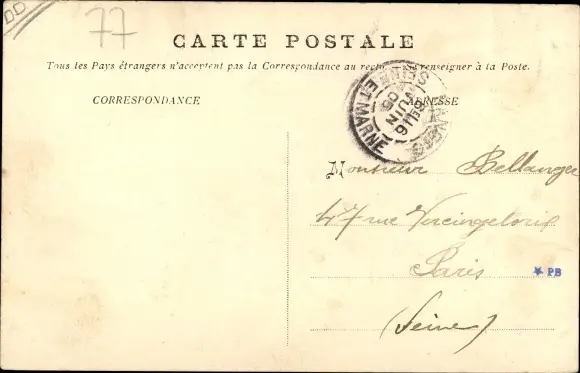 DD
77
CARTE POSTALE
Tous les Pays étrangers n'acceptent pas la Correspondance au recto. Se renseigner à la Poste.
CORRESPONDANCE
ADRESSE
SEINE ET MARNE
JUIN
05
Monsieur Bellanger
47 rue Vercingetorix
Paris
PB
(Seine)